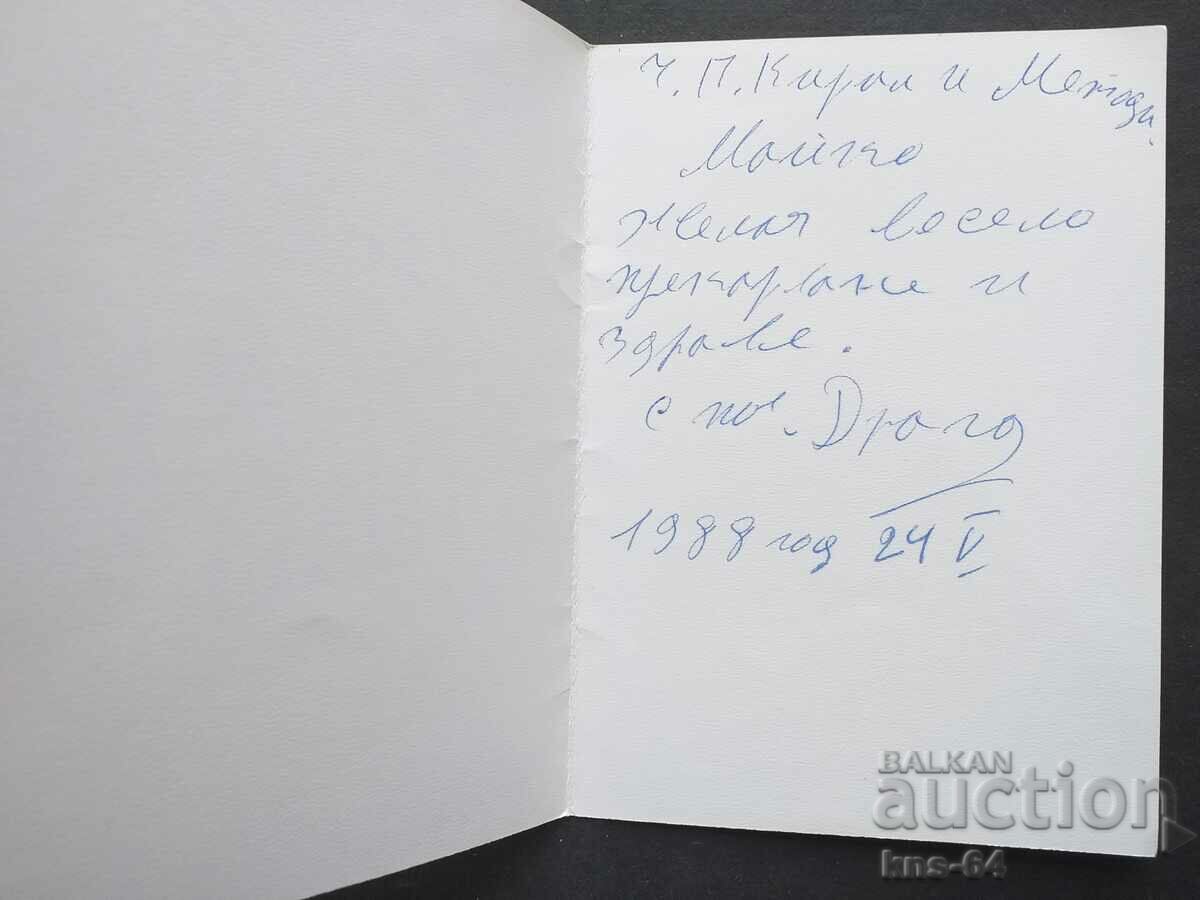 Ч.П. Кирил и Методи.
Майко
желая весело
прекарване и
здраве.
с поч. Драго
1988 год 24 V
BALKAN
auction
kns-64